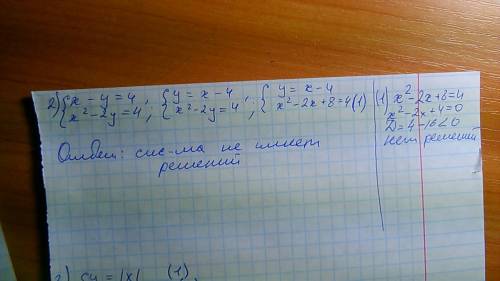 2) { x - y = 4, { y = x - 4, { y = x - 4
x² - 2y = 4; x² - 2y = 4; x² - 2x + 8 = 4 (1)
(1) x² - 2x + 8 = 4
x² - 2x + 4 = 0
D = 4 - 16 < 0
нет решений
Ответ: сис-ма не имеет
решений
2) { y = |x| (1)